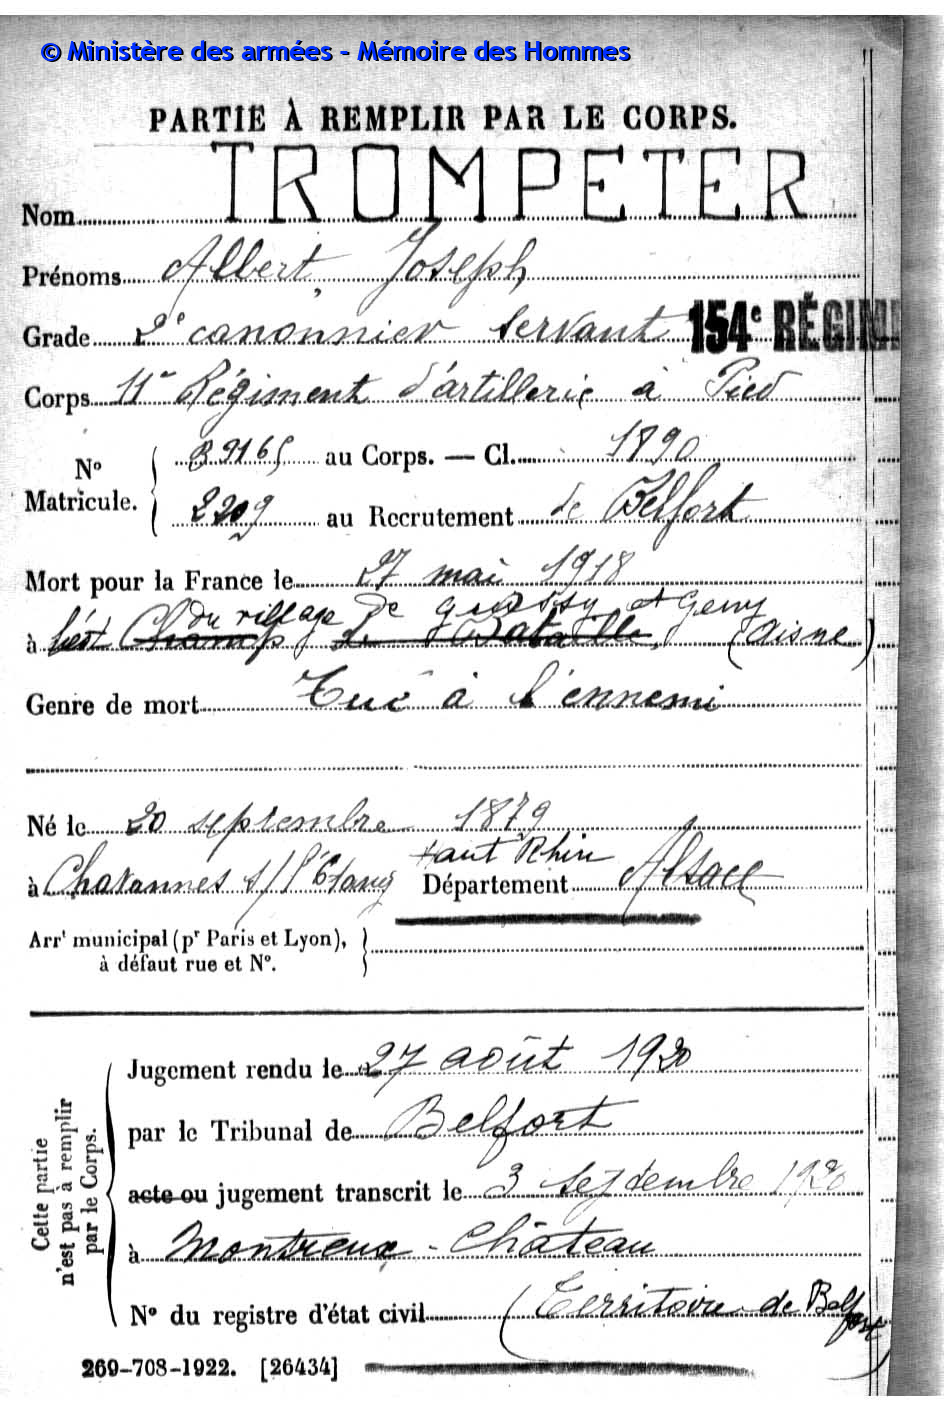 © Ministère des armées - Mémoire des Hommes
PARTIE À REMPLIR PAR LE CORPS.
Nom TROMPETER
Prénoms Albert, Joseph
Grade 2e canonnier servant 154e RÉGIM
Corps 11e Régiment d'artillerie à Pied
No Matricule. B 9165 au Corps. — Cl. 1890
2209 au Recrutement de Belfort
Mort pour la France le 27 mai 1918
du village de et Geny
à l'est Champ de Bataille, (Aisne)
Genre de mort Tué à l'ennemi
Né le 20 septembre 1879
Haut Rhin
à Chavannes s/ l'Étang Département Alsace
Arrt municipal (pr Paris et Lyon),
à défaut rue et No.
Cette partie
n'est pas à remplir
par le Corps.
Jugement rendu le 27 août 1920
par le Tribunal de Belfort
acte ou jugement transcrit le 3 septembre 1920
à Montreux-Château
No du registre d'état civil (Territoire de Belfort)
269-708-1922. [26434]